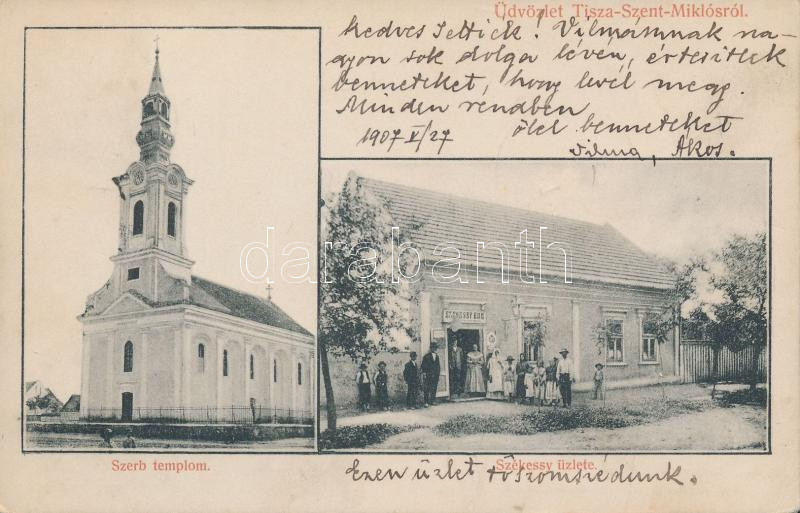 Üdvözlet Tisza-Szent-Miklósról.
Kedves Settiek! Vilmámnak na-
gyon sok dolga lévén, értesitlek
benneteket, hogy levél megy.
Minden rendben
1907 V/27 ölel benneteket
Vilma, Ákos.
darabanth
SZÉKESSY
Szerb templom.
Székessy üzlete.
Ezen üzlet tőszomszédunk.